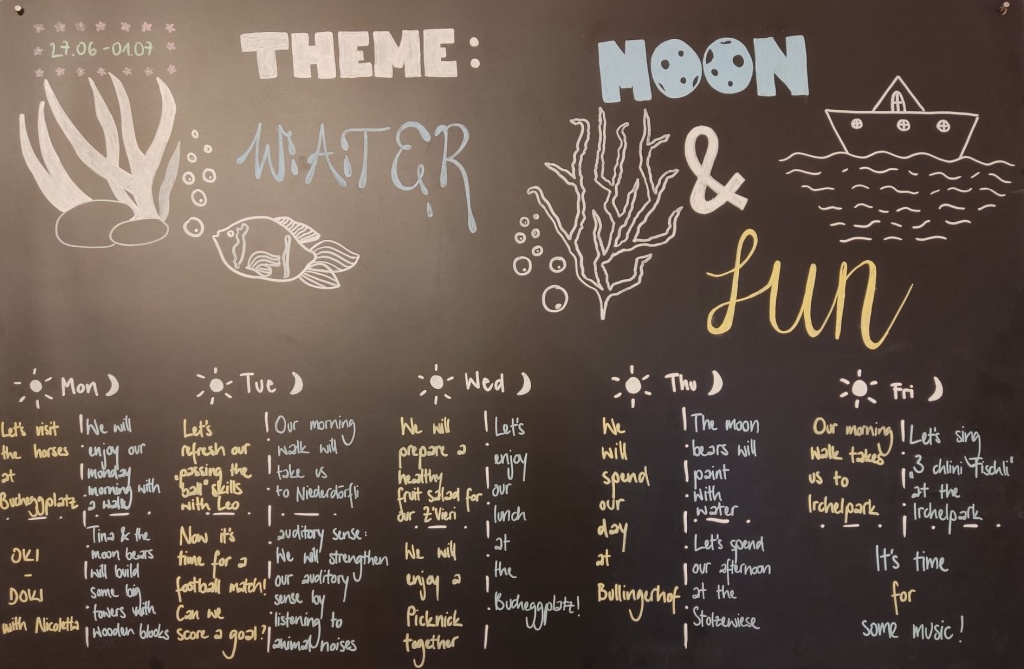 27.06 - 01.07
THEME:
WATER
MOON
&
Sun
Mon
Let's visit
the horses
at
Bucheggplatz.
OKI
-
DOKI
with Nicoletta
We will
enjoy our
monday
morning with
a walk
Tina & the
moon bears
will build
some big
towers with
wooden blocks
Tue
Let's
refresh our
passing the
"ball" skills
with Leo
Now it's
time for a
football match!
Can we
score a goal?
Our morning
walk will
take us
to Niederdörfli
auditory sense:
We will strengthen
our auditory
sense by
listening to
animal noises
Wed
We will
prepare a
healthy
fruit salad for
our Z'Vieri
We will
enjoy a
Picknick
together
Let's
enjoy
our
lunch
at
the
Bucheggplatz!
Thu
We
will
spend
our
day
at
Bullingerhof
The moon
bears will
paint
with
water
Let's spend
our afternoon
at the
Stolzewiese
Fri
Our morning
walk takes
us to
Irchelpark
Let's sing
"3 chlini Fischli"
at the
Irchelpark
It's time
for
some music!